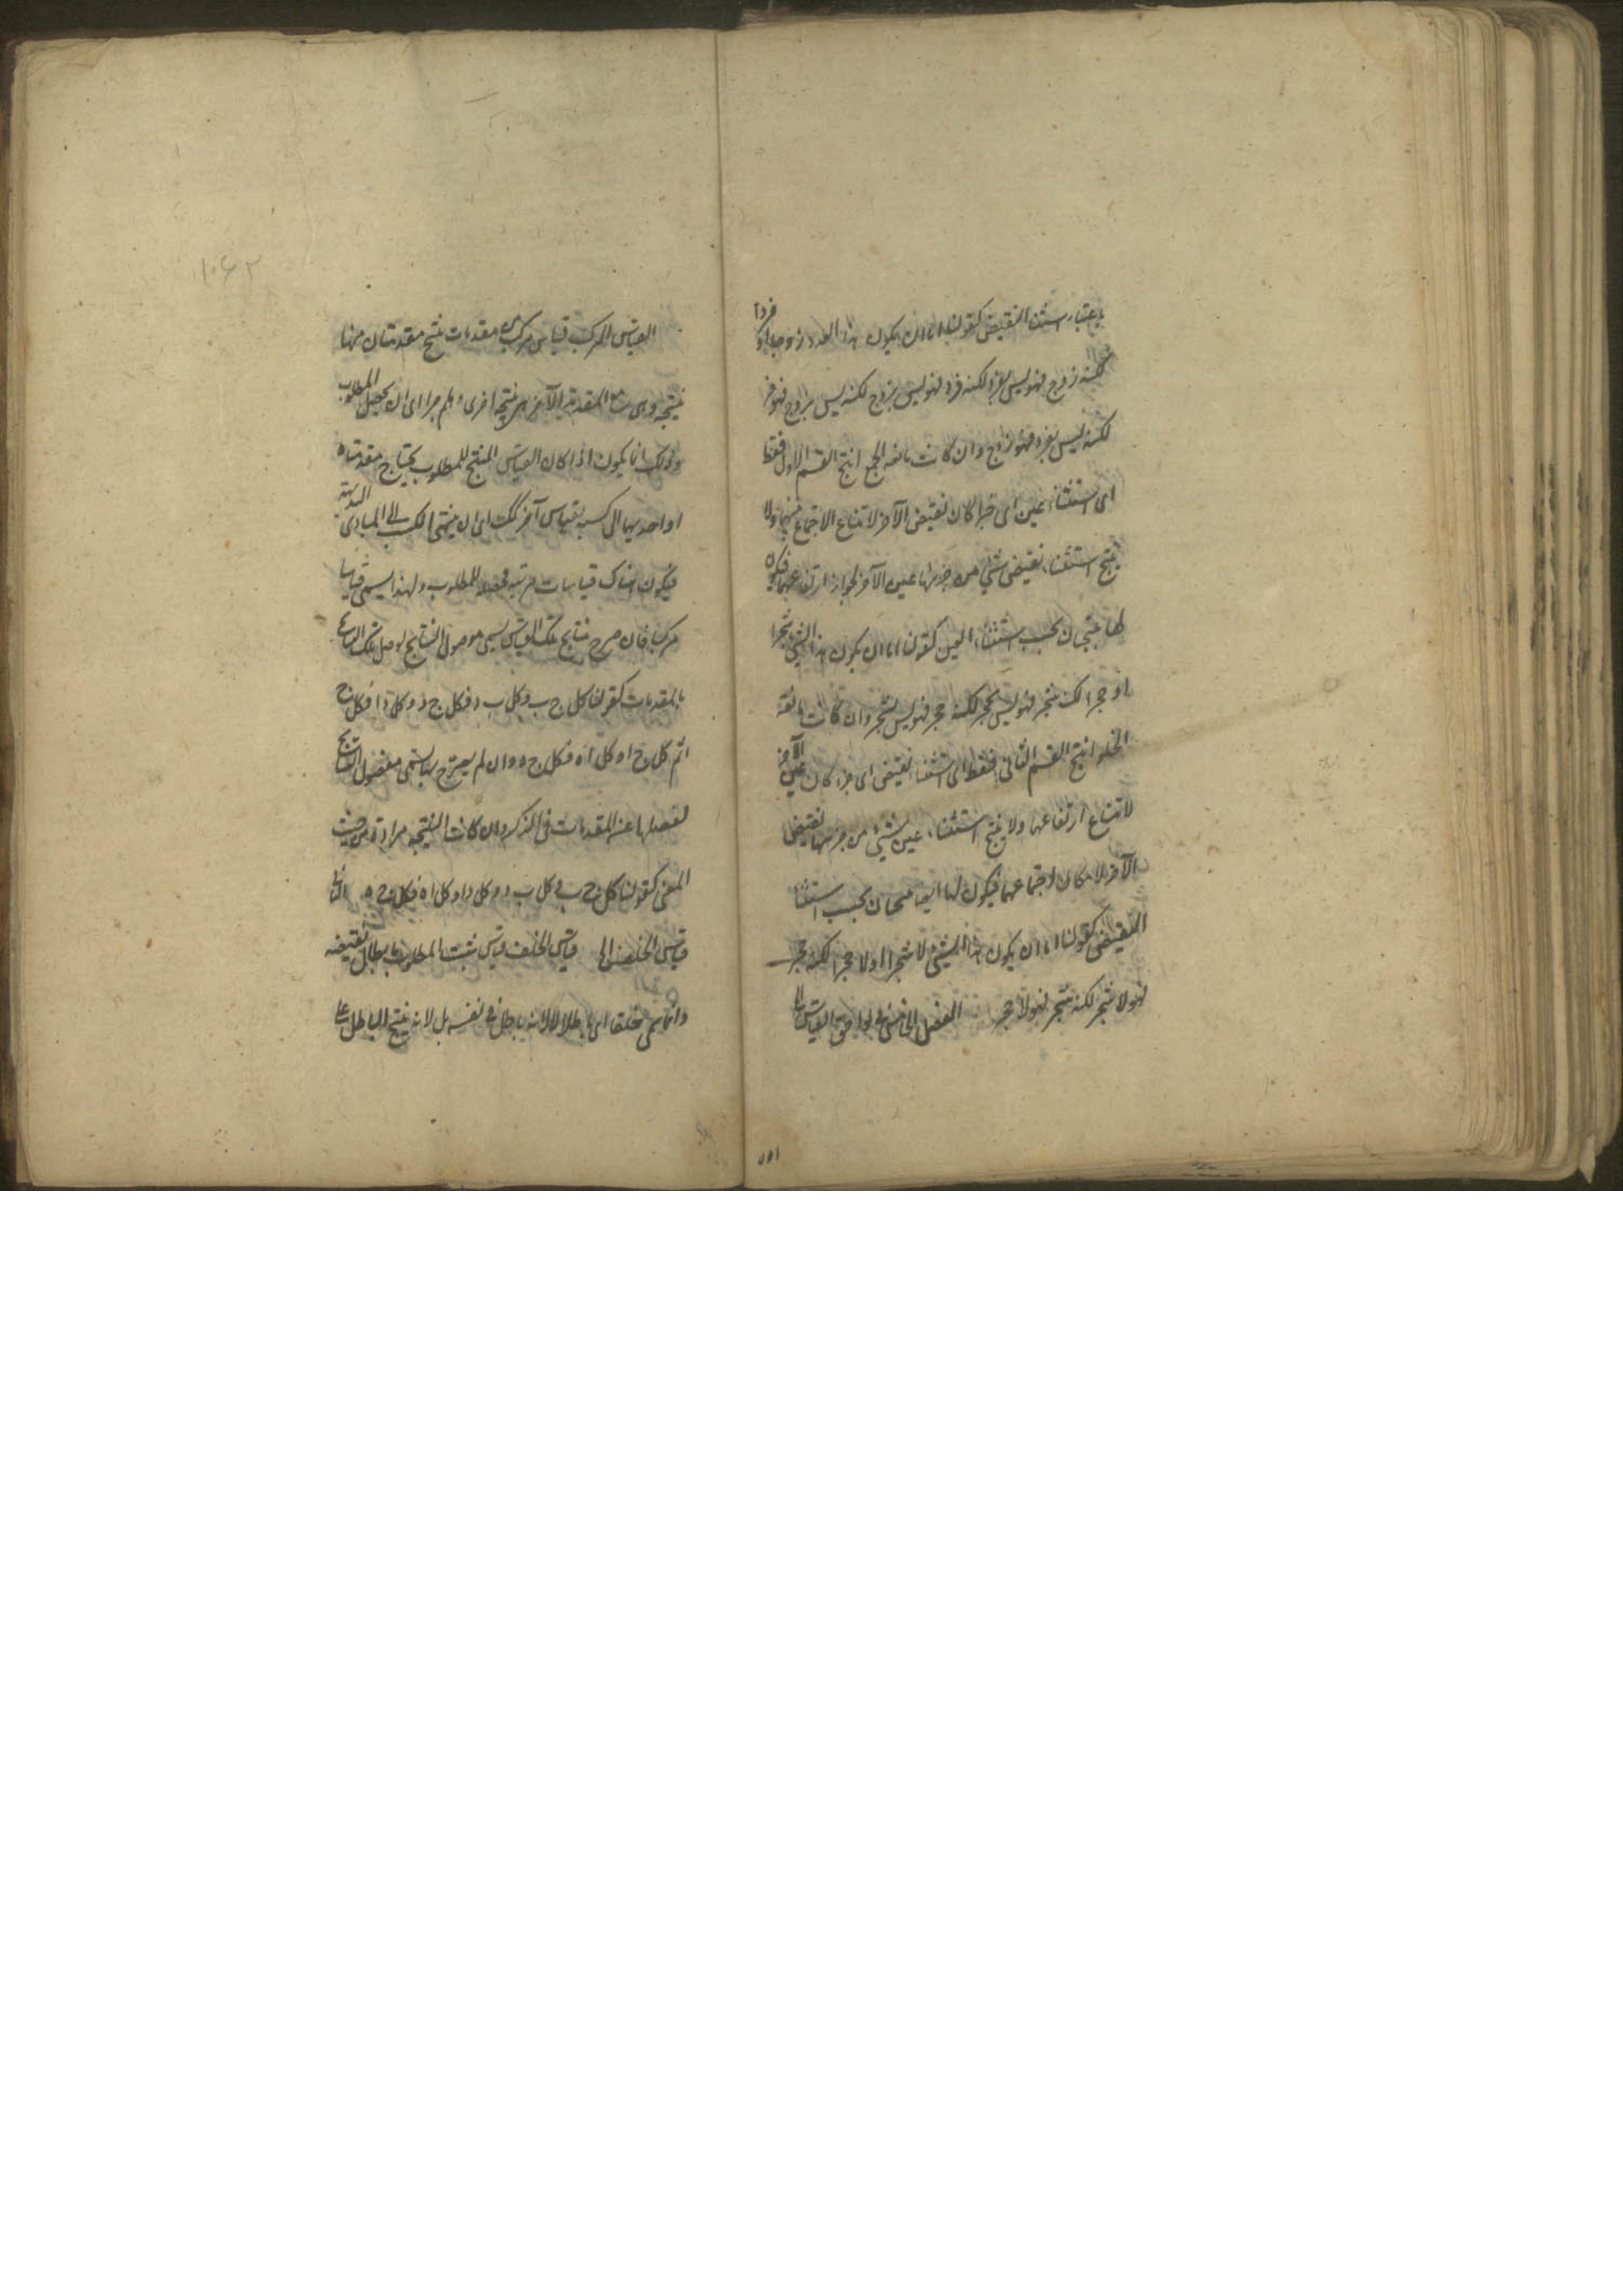 باعتبار استثناء النقيض كقولنا اما ان يكون هذا العدد زوجا او فردا
لكنه زوج فهو ليس بفرد لكنه فرد فهو ليس بزوج لكنه ليس بزوج فهو فرد
لكنه ليس بفرد فهو زوج وان كانت مانعة الجمع انتج القسم الاول فقط
اى استثناء عين اى جزء كان نقيض الآخر لامتناع الاجتماع بينهما ولا
ينتج استثناء نقيض شئ من جزئيها عين الآخر لجواز ارتفاعهما فيكون
لها نتيجتان بحسب استثناء العين كقولنا اما ان يكون هذا الشئ شجرا
او حجرا لكنه شجر فهو ليس بحجر لكنه حجر فهو ليس بشجر وان كانت مانعة
الخلو انتج القسم الثانى فقط اى استثناء نقيض اى جزء كان عين الآخر
لامتناع ارتفاعهما ولا ينتج استثناء عين شئ من جزئيها نقيض
الآخر لامكان اجتماعهما فيكون لها ايضا نتيجتان بحسب استثناء
النقيض كقولنا اما ان يكون هذا الشئ لا شجرا او لا حجرا لكنه حجر
فهو لا شجر لكنه شجر فهو لا حجر الفصل الخامس فى لواحق القياس
القياس المركب قياس مركب من مقدمات ينتج مقدمتان منها
نتيجة وهى مع المقدمة الآخرى نتيجة اخرى وهلم جرا الى ان يحصل المطلوب
وذلك انما يكون اذا كان القياس المنتج للمطلوب يحتاج مقدمتاه
او احديهما الى كسب بقياس آخر كذلك الى ان ينتهى الكسب الى المبادى البديهية
فيكون هناك قياسات مرتبة محصلة للمطلوب ولهذا يسمى قياسا
مركبا فان صرح نتايج تلك القياسات يسمى موصول النتايج لوصل تلك النتايج
بالمقدمات كقولنا كل ج ب وكل ب د فكل ج د وكل د ا فكل ج ا
ثم كل ج ا وكل ا ه فكل ج ه وان لم يصرح بها يسمى مفصول النتايج
لفصلها عن المقدمات فى الذكر وان كانت النتيجة مرادة من حيث
المعنى كقولنا كل ج ب وكل ب د وكل د ا وكل ا ه فكل ج ه الثانى
قياس الخلف الى قياس الخلف قياس يثبت المطلوب بابطال نقيضه
وانما سمى خلفا اى باطلا لا لانه باطل فى نفسه بل لانه ينتج الباطل على